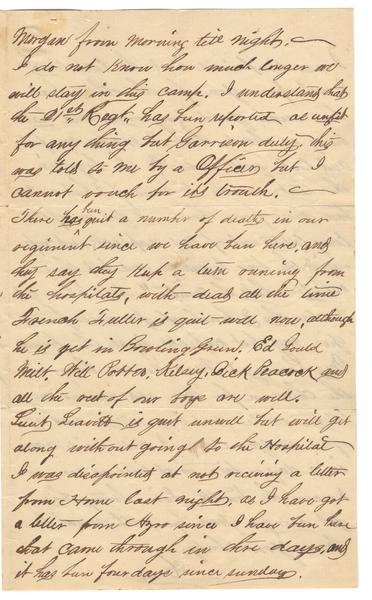 Morgan from morning till night.
I do not know how much longer we
will stay in this camp. I understand that
the 21st Regt. has bun reported as unfit
for any thing but Garrison duty, this
was told to me by a Officer but I
cannot vouch for its trouth.
There has bun quit a number of deaths in our
regiment since we have bun here, and
they say they kup a turn running from
the hospitals, with dead all the time
French Fuller is quit well now, although
he is yet in Bowling Grun. Ed Gould
Milt. Will Potter. Kelsey. Dick Peacock and
all the rest of our boys are well.
Lieut Leavitt is quit unwell but will get
along without going to the Hospital
I was disapointed at not reciving a letter
from Home last night, as I have got
a letter from since I have bun here
that came through in thre days, and
it has bun four days since sunday.